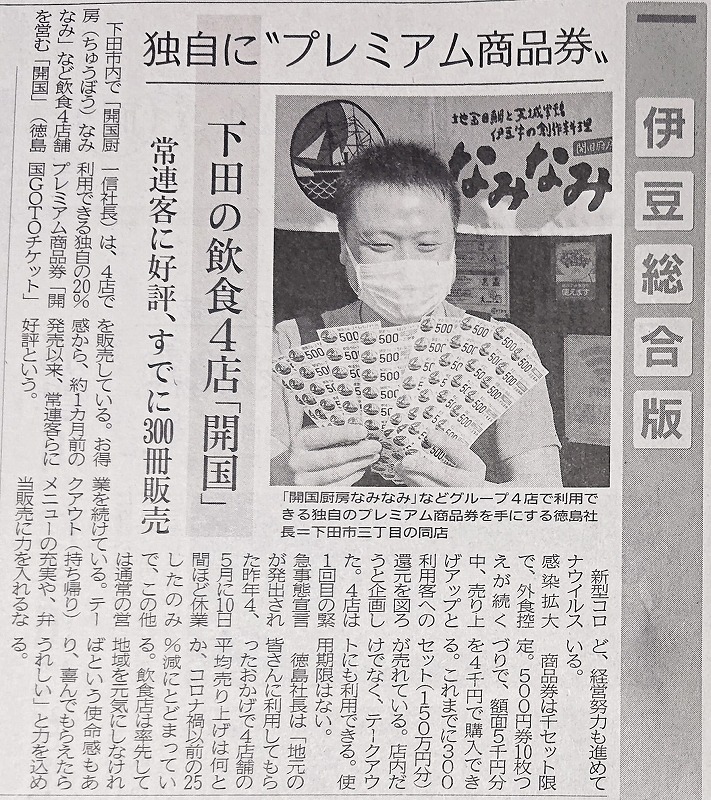 伊豆総合版
独自に〝プレミアム商品券〟
下田の飲食4店「開国」
常連客に好評、すでに300冊販売
地金目鯛と天城軍鶏
伊豆牛の創作料理
なみなみ
500
「開国厨房なみなみ」などグループ4店で利用で
きる独自のプレミアム商品券を手にする徳島社
長=下田市三丁目の同店
下田市内で「開国厨
房（ちゅうぼう）なみ
なみ」など飲食4店舗
を営む「開国」（徳島
一信社長）は、4店で
利用できる独自の20%
プレミアム商品券「開
国GOTOチケット」
を販売している。お得
感から、約1カ月前の
発売以来、常連客らに
好評という。
新型コロ
ナウイルス
感染拡大
で、外食控
えが続く
中、売り上
げアップと
利用客への
還元を図ろ
うと企画し
た。4店は
1回目の緊
急事態宣言
が発出され
た昨年4、
5月に10日
間ほど休業
したのみ
で、この他
は通常の営
業を続けている。テー
クアウト（持ち帰り）
メニューの充実や、弁
当販売に力を入れるな
ど、経営努力も進めて
いる。
商品券は千セット限
定。500円券10枚つ
づりで、額面5千円分
を4千円で購入でき
る。これまでに300
セット（150万円分）
が売れている。店内だ
けでなく、テークアウ
トにも利用できる。使
用期限はない。
徳島社長は「地元の
皆さんに利用してもら
ったおかげで4店舗の
平均売り上げは何と
か、コロナ禍以前の25
%減にとどまってい
る。飲食店は率先して
地域を元気にしなけれ
ばという使命感もあ
り、喜んでもらえたら
うれしい」と力を込め
る。